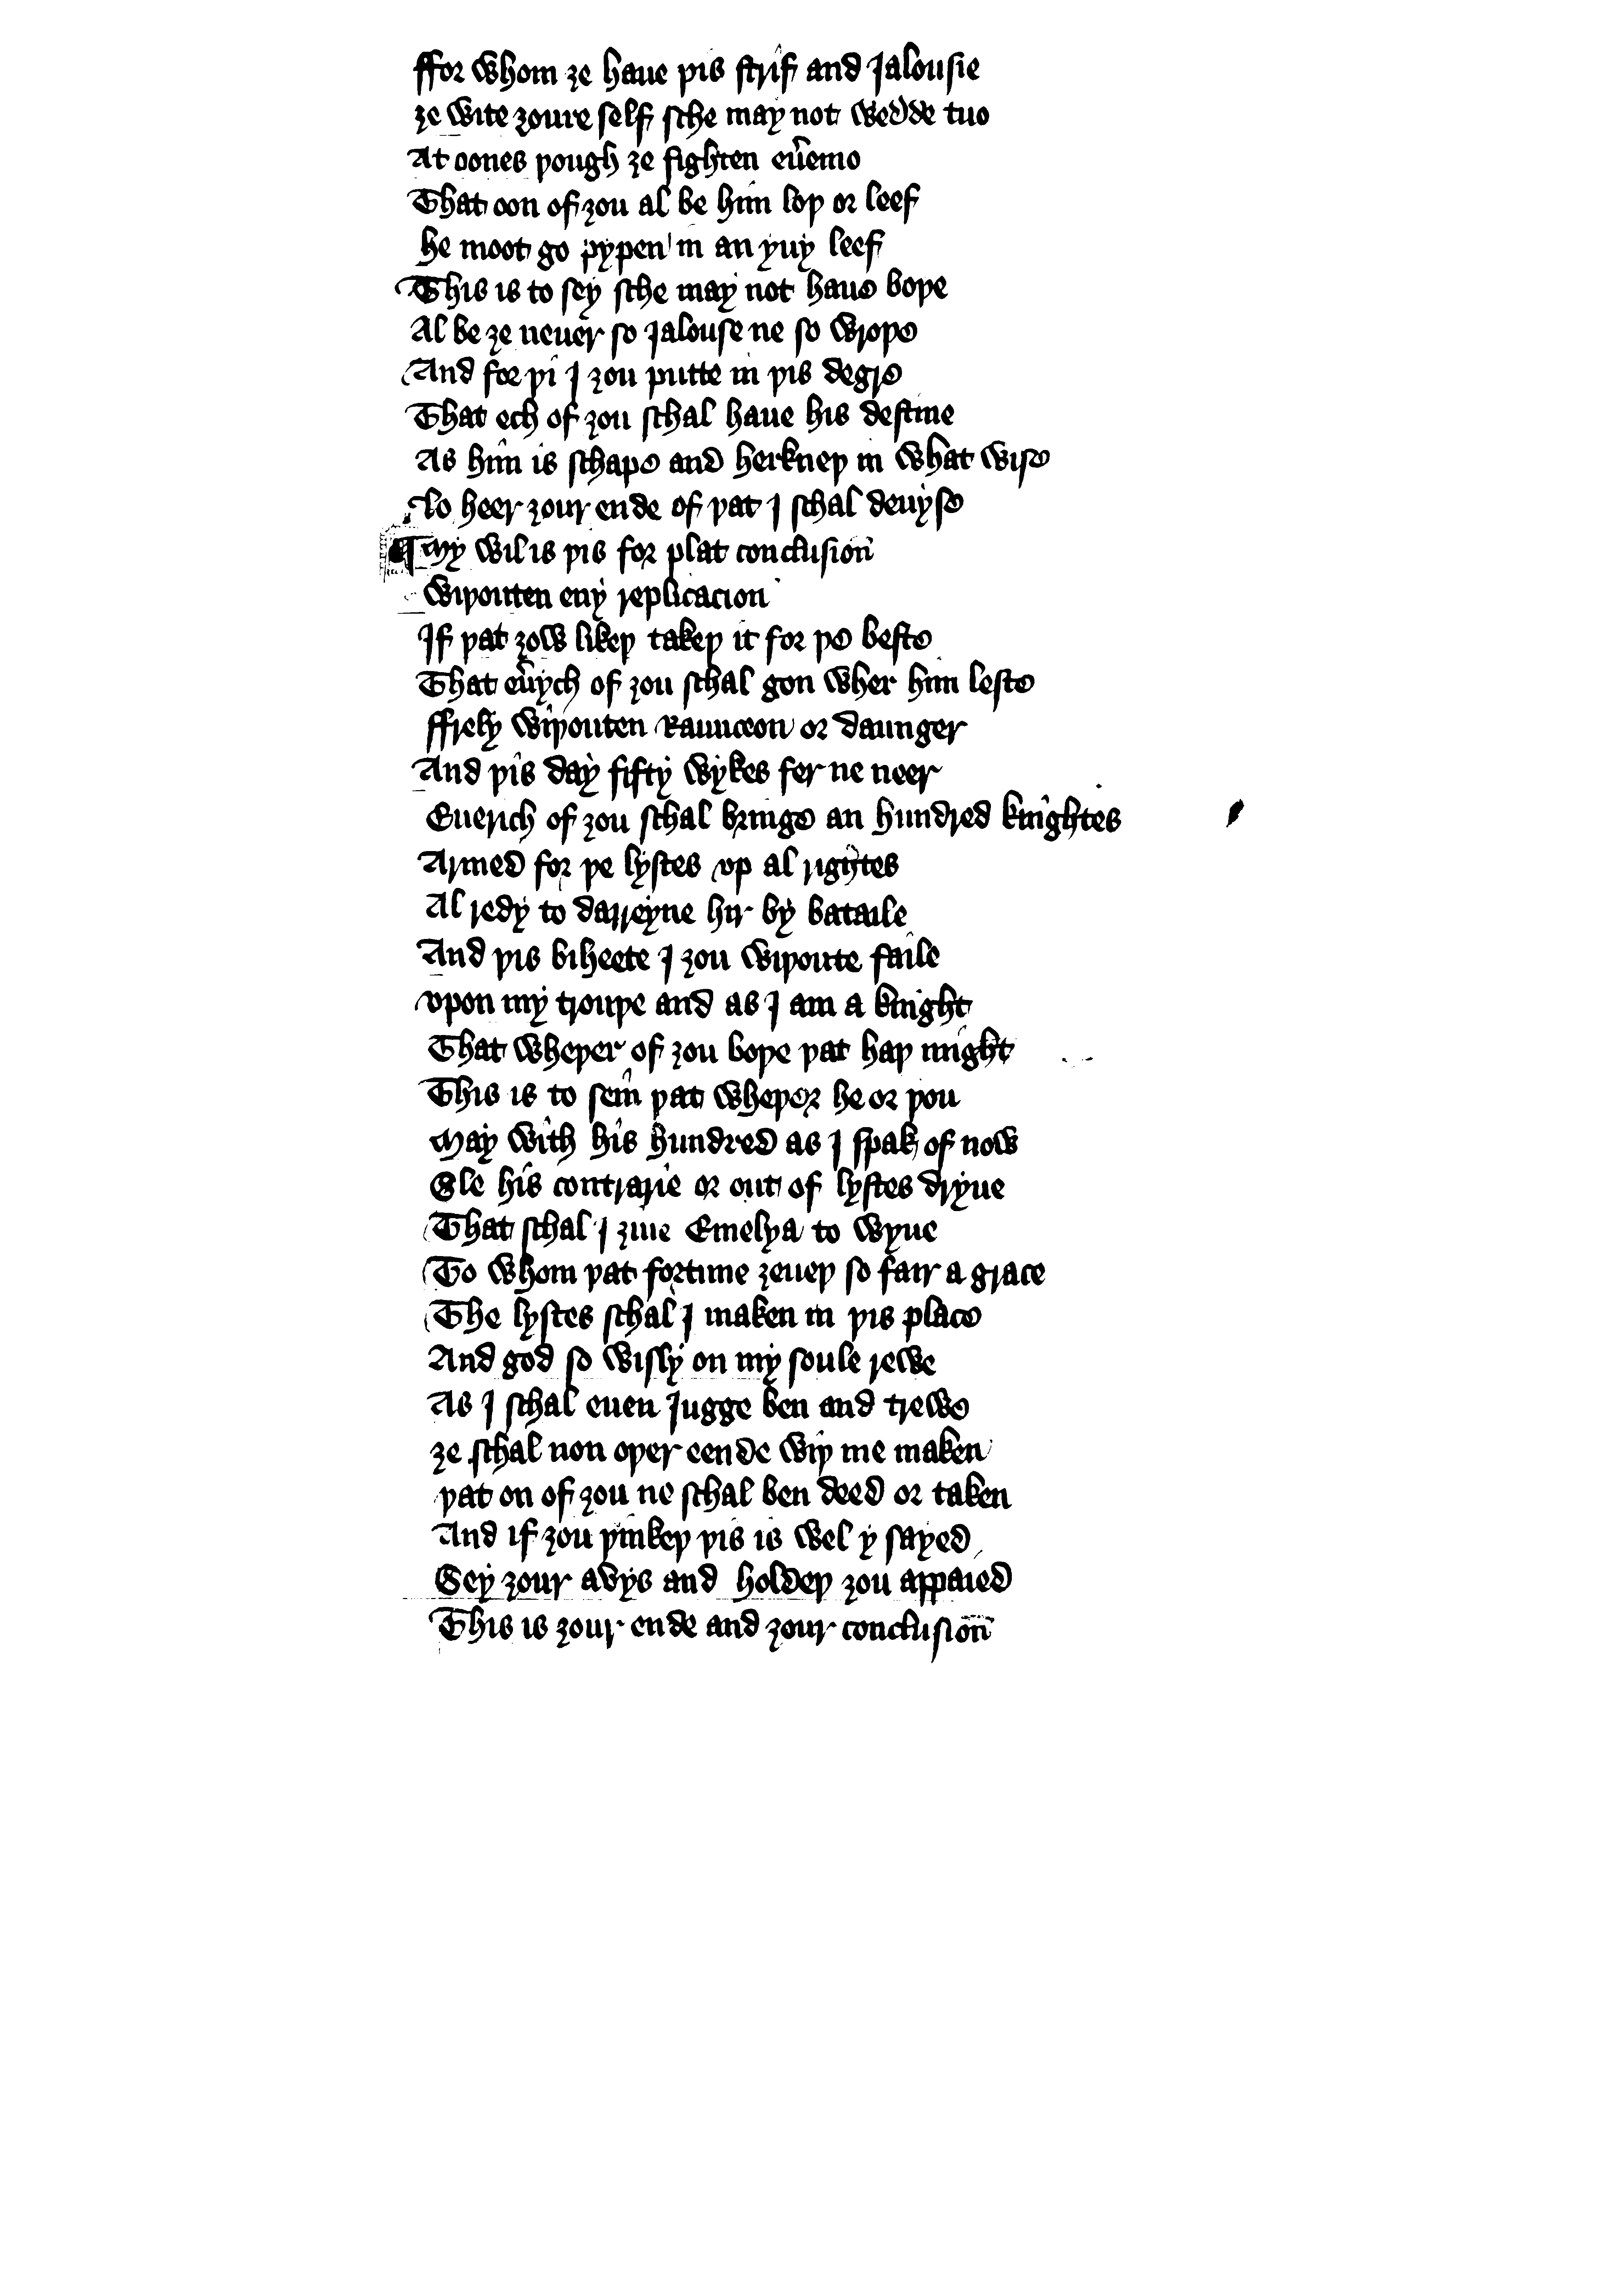 ffor whom ȝe haue þis strif and Jalousie
ȝe wite ȝoure self sche may not wedde tuo
At oones þough ȝe fighten eu̅emo
That oon of ȝou al be him loþ or leef
he moot go pypen in an yuy leef
This is to sey sche may not haue boþe
Al be ȝe neuer so Jalouse ne so wroþe
And for þi I ȝou putte in þis degre
That ech of ȝou schal haue his destine
As him is schape and herkneþ in what wise
lo heer ȝour ende of þat I schal deuyse
¶ My wil is þis for plat conclusion̅
Wiþouten eny replicacion
If þat ȝow likeþ takeþ it for þe beste
That eu̅ych of ȝou schal gon wher him leste
ffrely wiþouten Raunceon or daunger
And þis day fifty wykes fer ne neer
Euerich of ȝou schal bringe an hundred knightes
Armed for þe lystes vp al rightes
Al redy to darreyne hir by bataile
And þis biheete I ȝou wiþoute faile
vpon my trouþe and as I am a knight
That wheþer of ȝou boþe þat haþ might
This is to sein þat wheþer he or þou
May with his hundred as I spak of now
Sle his contrarie or out of lystes dryue
That schal I ȝiue Emelya to wyue
To whom þat fortune ȝeueþ so fair a grace
The lystes schal I maken in þis place
And god so wisly on my soule rewe
As I schal euen Jugge ben and trewe
ȝe schal non oþer eende wiþ me maken
þat on of ȝou ne schal ben deed or taken
And if ȝou þinkeþ þis is wel y sayed
Sey ȝour avys and holdeþ ȝou appaied
This is ȝour ende and ȝour conclusion̅